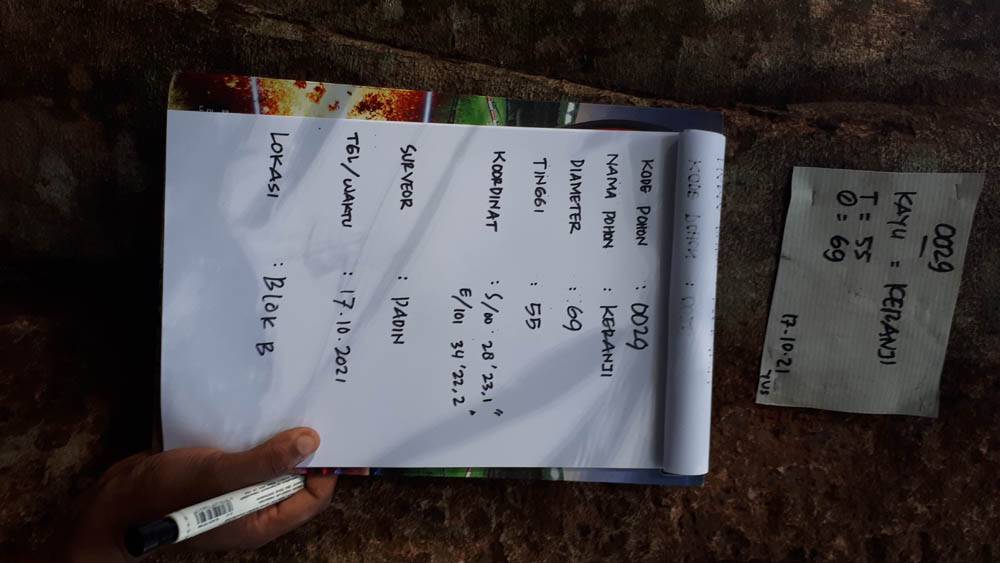 0029
KAYU = KERANJI
T = 55
Ø = 69
17.10.21
YUS
KODE POHON :
KODE POHON : 0029
NAMA POHON : KERANJI
DIAMETER : 69
TINGGI : 55
KOORDINAT : S/00 28'23,1"
E/101 34'22,2"
SURVEOR : PADIN
TGL/WAKTU : 17.10.2021
LOKASI : BLOK B